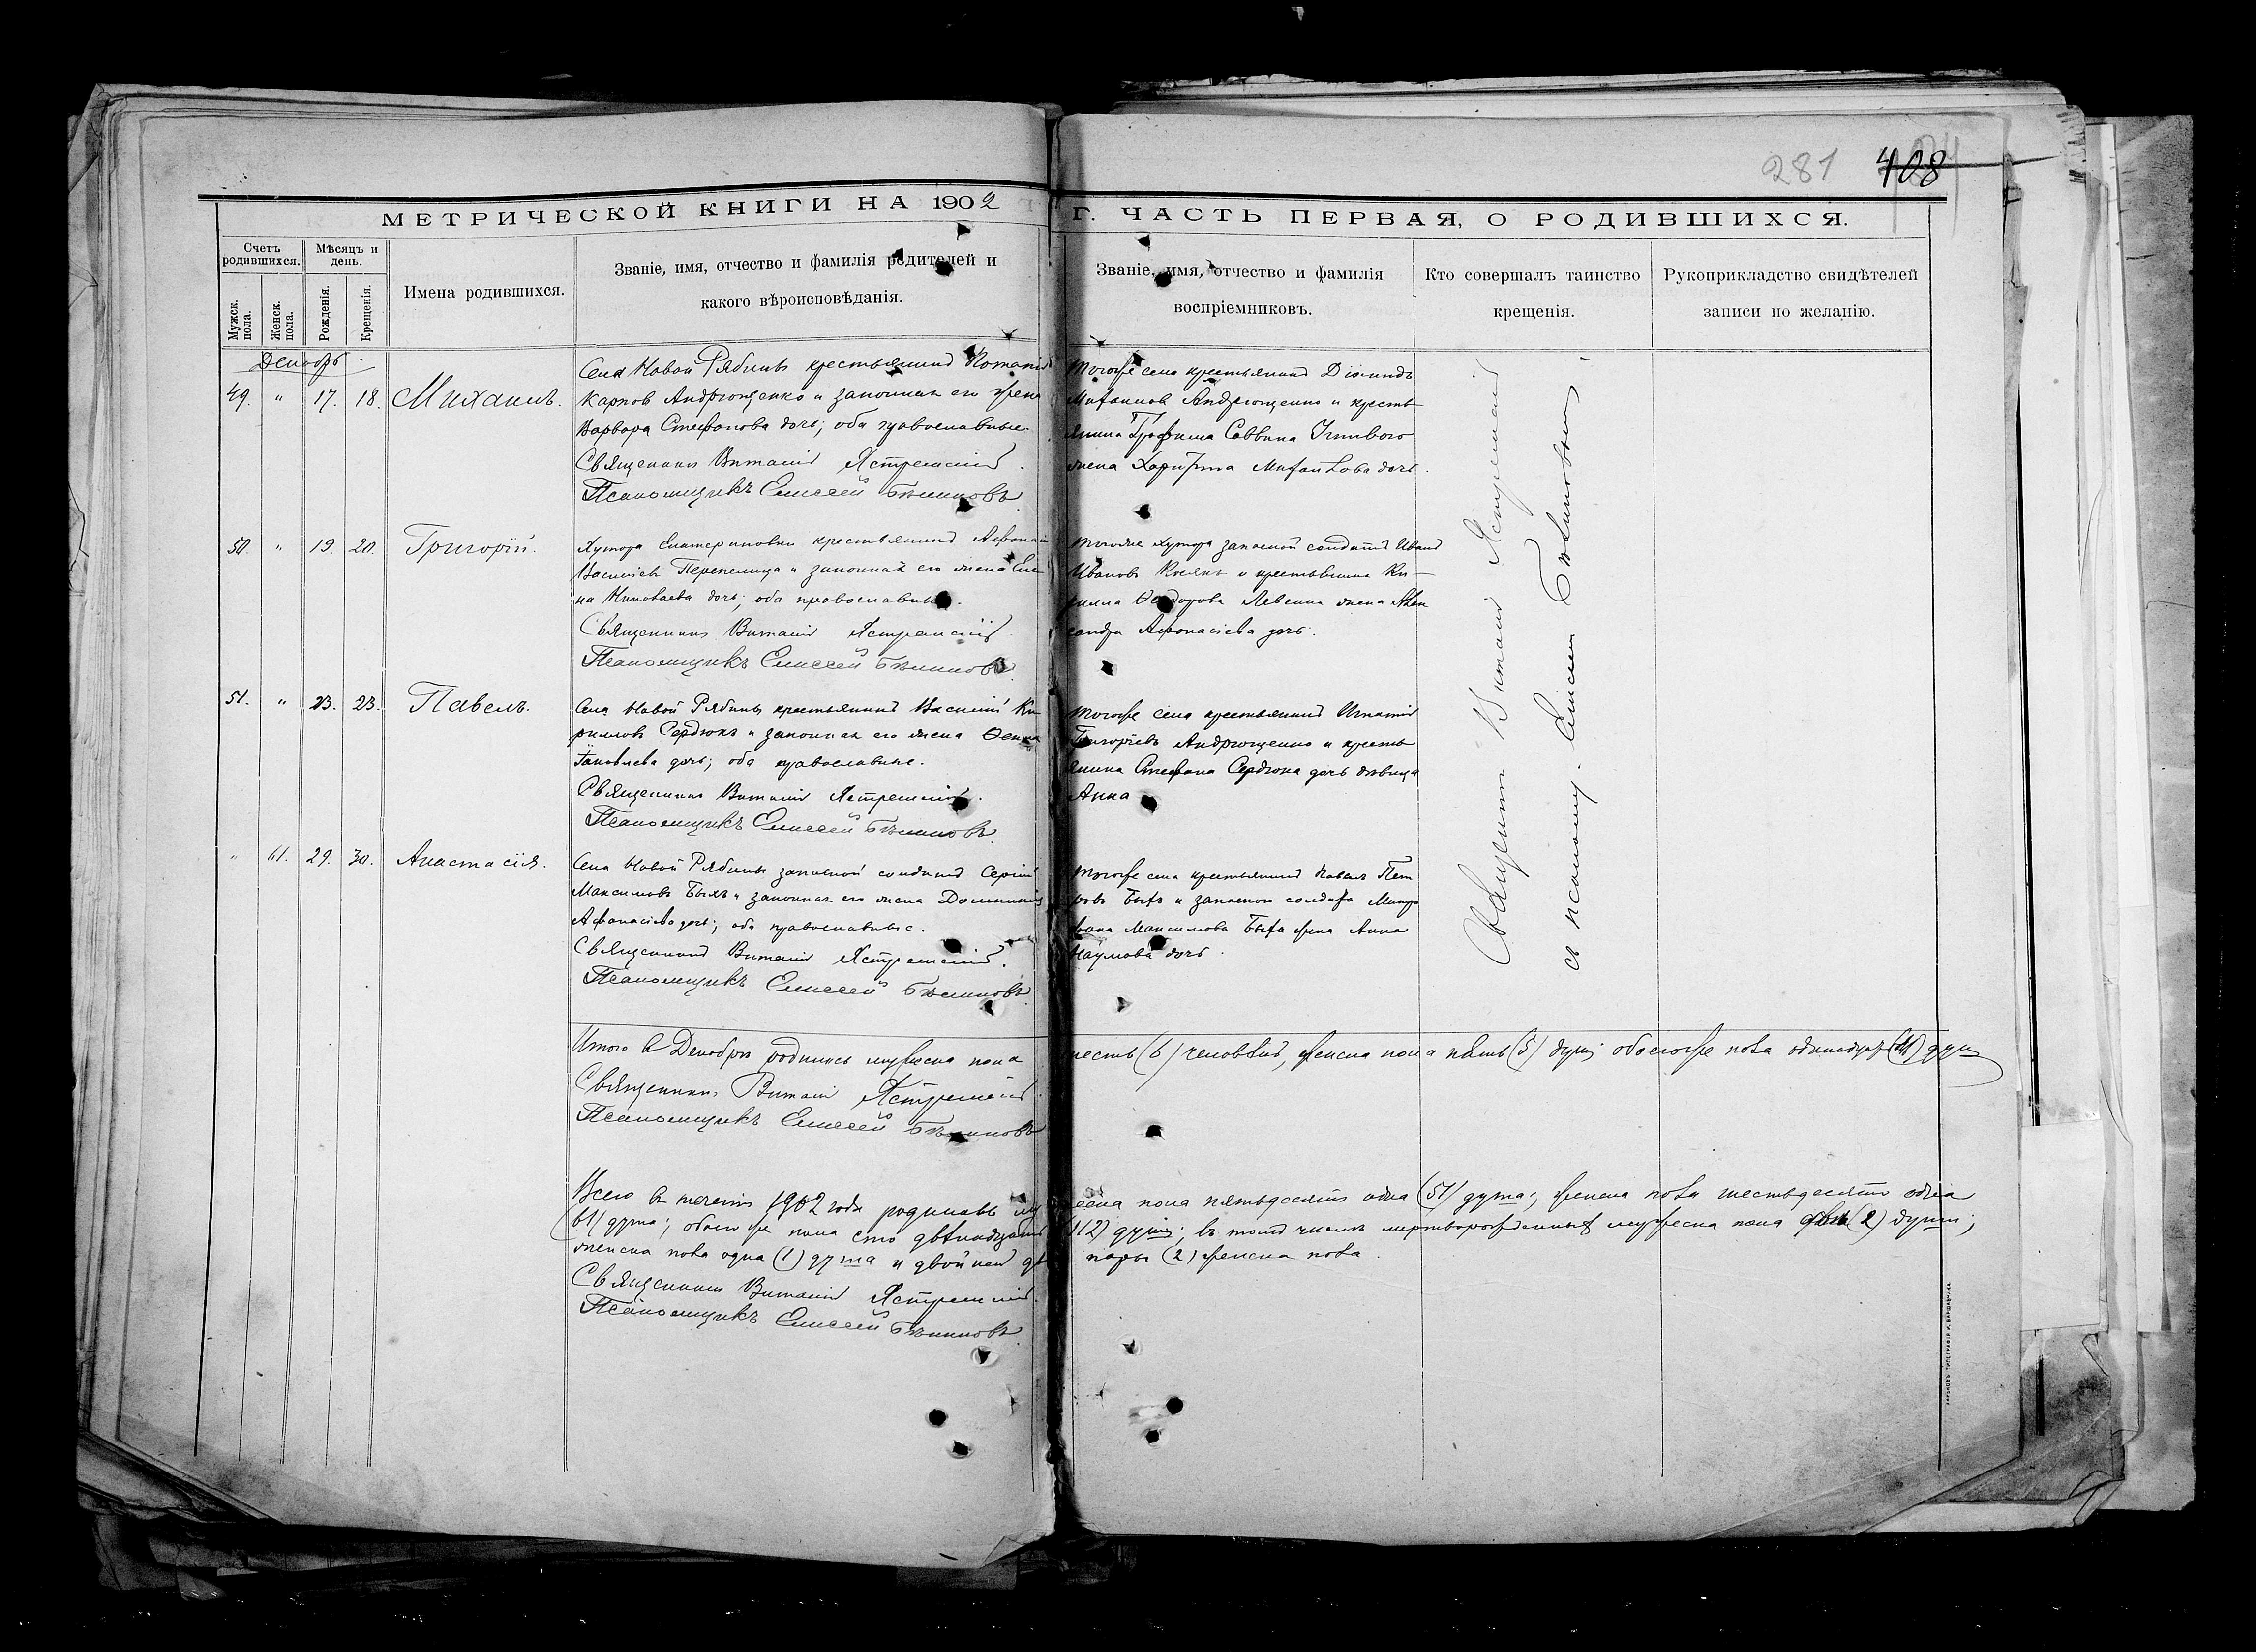 281 408
МЕТРИЧЕСКОЙ КНИГИ НА 1902
Г. ЧАСТЬ ПЕРВАЯ, О РОДИВШИХСЯ.
Счетъ родившихся.
Мѣсяцъ и день.
Мужск. пола.
Женск. пола.
Рожденія.
Крещенія.
Имена родившихся.
Званіе, имя, отчество и фамилія родителей и
какого вѣроисповѣданія.
Званіе, имя, отчество и фамилія
воспріемниковъ.
Кто совершалъ таинство
крещенія.
Рукоприкладство свидѣтелей
записи по желанію.
Декабрь
49. " 17. 18. Михаилъ.
Села Новой Рябины крестьянинъ
Карпов Андрющенко и законная его жена
Варвара Стефанова дочь; оба православные.
Священникъ Виталій Ястремскій.
Псаломщикъ Елисей Бѣликовъ.
Тогоже села крестьянинъ
Михаиловъ Андрющенко и кресть
янина Трофима Саввина
жена Харитина Михаилова дочь.
50 " 19. 20. Григорій.
Хутора Екатериновки крестьянинъ
Василіевъ Перепелица и законная его жена Еле
на Николаева дочь; оба православные.
Священникъ Виталій Ястремскій
Псаломщикъ Елисей Бѣликовъ.
Тогоже хутора запасной солдатъ Иванъ
Ивановъ и крестьянина Ки-
рилла Ѳеодорова жена Алек
сандра Афонасіева дочь.
51. " 23. 23. Павелъ.
Села Новой Рябины крестьянинъ Василій Ки
рилловъ Сердюкъ и законная его жена
Іаковлева дочь; оба православные.
Священникъ Виталій Ястремскій.
Псаломщикъ Елисей Бѣликовъ.
Тогоже села крестьянинъ Игнатій
Григоріевъ Андрющенко и кресть
янина Стефана Сердюка дочь дѣвица
Анна
" 61. 29. 30. Анастасія.
Села Новой Рябины запасной солдатъ Сергій
Максимовъ Быхъ и законная его жена
Афанасіева дочь; оба православные.
Священникъ Виталій Ястремскій.
Псаломщикъ Елисей Бѣликовъ.
Тогоже села крестьянинъ Павелъ Пет
ровъ Быхъ и запасного солдата
Максимова Быха жена Анна
Наумова дочь.
Священникъ Виталій Ястремскій
съ псаломщ. Елисеем Бѣликовым
Итого в Декабрѣ родилось мужеска пола шесть (6) человѣкъ, женска пола пять (5) душъ обоегоже пола одинадцать (11) душ
Священникъ Виталій Ястремскій.
Псаломщикъ Елисей Бѣликовъ
Всего въ теченіи 1902 года родилось мужеска пола пятьдесятъ одна (51) душа; женска пола шестьдесятъ одна
(61) душа; обоего же пола сто двѣнадцать (112) душъ; въ томъ числѣ мертворожденных мужеска пола двѣ (2) души;
женска пола одна (1) душа и двойней двѣ пары (2) женска пола.
Священникъ Виталій Ястремскій.
Псаломщикъ Елисей Бѣликовъ.